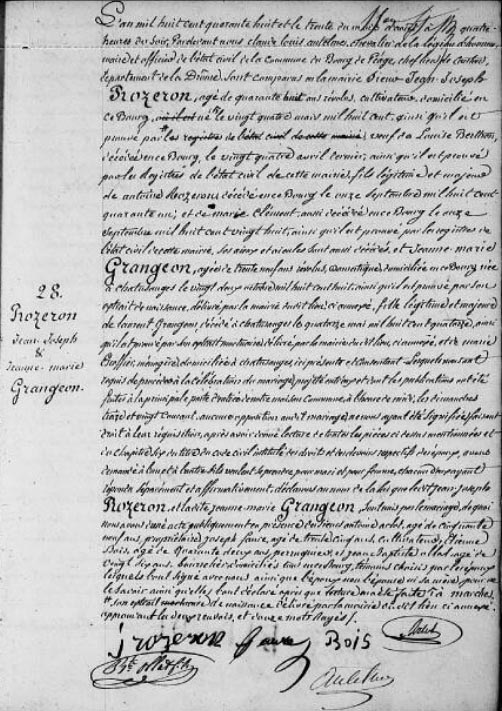 L'an mil huit cent quarante huit et le trente du mois d'août à quatre
heures du soir, Pardevant nous Claude Louis antelme, chevalier de la légion d'honneur
maire et officier de l'état civil de la Commune du Bourg de Péage, chef lieu de Canton,
département de la Drôme, Sont comparus en la mairie Sieur Jean-Joseph
Rozeron, agé de quarante huit ans révolus, cultivateur, domicilié en
ce Bourg, né le vingt quatre mai mil huit cent, ainsi qu'il est
prouvé par les registres de l'état civil de cette mairie, veuf de Louise Berthon,
décédée en ce Bourg, le vingt quatre avril dernier, ainsi qu'il est prouvé
par les Registres de l'état civil de cette mairie, fils légitime et majeur
de antoine Rozeron, décédé en ce Bourg le onze Septembre mil huit cent
quarante un; et de marie Clément, aussi décédée en ce Bourg le onze
Septembre mil huit cent vingt huit; ainsi qu'il est prouvé par les registres de
l'état civil de cette mairie, Ses aieux et aieules Sont aussi décédés, et Jeanne-marie
Grangeon, agée de trente neuf ans révolus, domestique, domiciliée en ce Bourg, née
à chatusanges le vingt deux octobre mil huit cent huit, ainsi qu'il est prouvé par son
extrait de naissance, délivré par la mairie du dit lieu, ci annexé, fille légitime et majeure
de laurent Grangeon, décédé à chatusanges le quatorze mai mil huit cent quatorze, ainsi
qu'il est prouvé par son extrait mortuaire délivré par la mairie du dit lieu, ci annexé, et de marie
ménagère, domiciliée à chatusanges, ici présente et consentant. Lesquels nous ont
requis de procéder à la célébration du mariage projeté entre eux et dont les publications ont été
faites à la principale porte d'entrée de notre maison Commune, à l'heure de midi, les dimanches
treize et vingt Courant, aucune opposition au dit mariage ne nous ayant été Signifiée, faisant
droit à leur réquisition, après avoir donné lecture de toutes les pièces ci dessus mentionnées et
du chapitre six du titre du code civil intitulé des droits et des devoirs respectifs des époux, avons
demandé à l'un et à l'autre s'ils veulent Se prendre pour mari et pour femme, chacun d'eux ayant
répondu Séparément et affirmativement, déclarons au nom de la loi que le dit Jean-Joseph
Rozeron, et la dite jeanne-marie Grangeon, Sont unis par le mariage, de quoi
nous avons dressé acte publiquement en présence de Sieurs antoine aclot, agé de cinquante
neuf ans, propriétaire, joseph faure, agé de trente cinq ans, cultivateur, Etienne
Bois, agé de Quarante deux ans, perruquier, et jean Baptiste allat, agé de
vingt six ans, bourrelier, domiciliés tous en ce Bourg, témoins choisis par les époux
lesquels l'ont Signé avec nous ainsi que l'époux non l'épouse ni sa mère, pour ne
le Savoir ainsi qu'elles l'ont déclaré après que lecture en a été faite
son extrait de naissance délivré par la mairie du dit lieu ci annexé
approuvant les deux renvois, et douze mots Rayés /.
jrozeron faure Bois
28.
Rozeron
Jean-Joseph
&
Jeanne-marie
Grangeon.